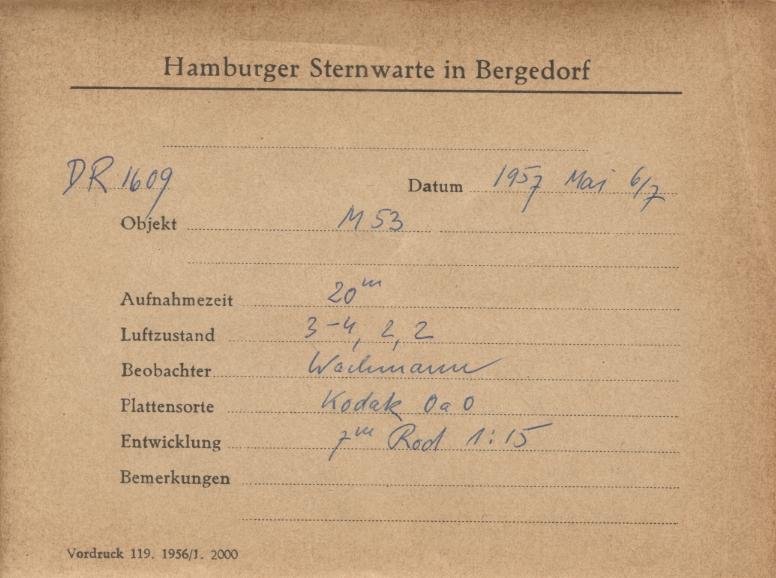 Hamburger Sternwarte in Bergedorf
DR 1609 Datum 1957 Mai 6/7
Objekt M 53
Aufnahmezeit 20ᵐ
Luftzustand 3-4, 2, 2
Beobachter Wachmann
Plattensorte Kodak OaO
Entwicklung 7ᵐ Rod 1:15
Bemerkungen
Vordruck 119. 1956/1. 2000